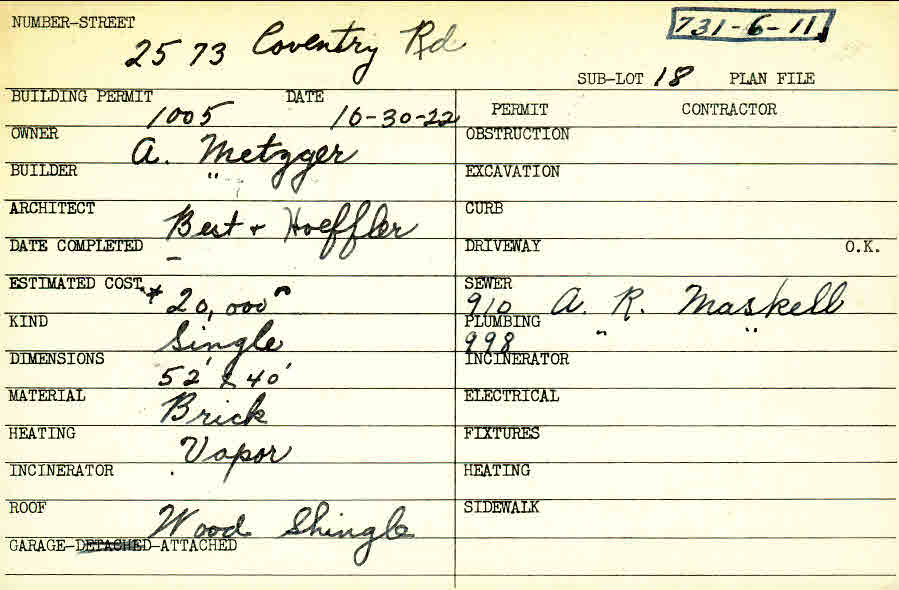 NUMBER-STREET
2573 Coventry Rd
731-6-11
SUB-LOT 18 PLAN FILE
BUILDING PERMIT 1005 DATE 10-30-22
PERMIT CONTRACTOR
OWNER A. Metzger
OBSTRUCTION
BUILDER "
EXCAVATION
ARCHITECT Best + Hoeffler
CURB
DATE COMPLETED -
DRIVEWAY O.K.
ESTIMATED COST $20,000
SEWER 910 A. R. Maskell
KIND Single
PLUMBING 998 " "
DIMENSIONS 52' x 40'
INCINERATOR
MATERIAL Brick
ELECTRICAL
HEATING Vapor
FIXTURES
INCINERATOR
HEATING
ROOF Wood Shingle
SIDEWALK
GARAGE-DETACHED-ATTACHED